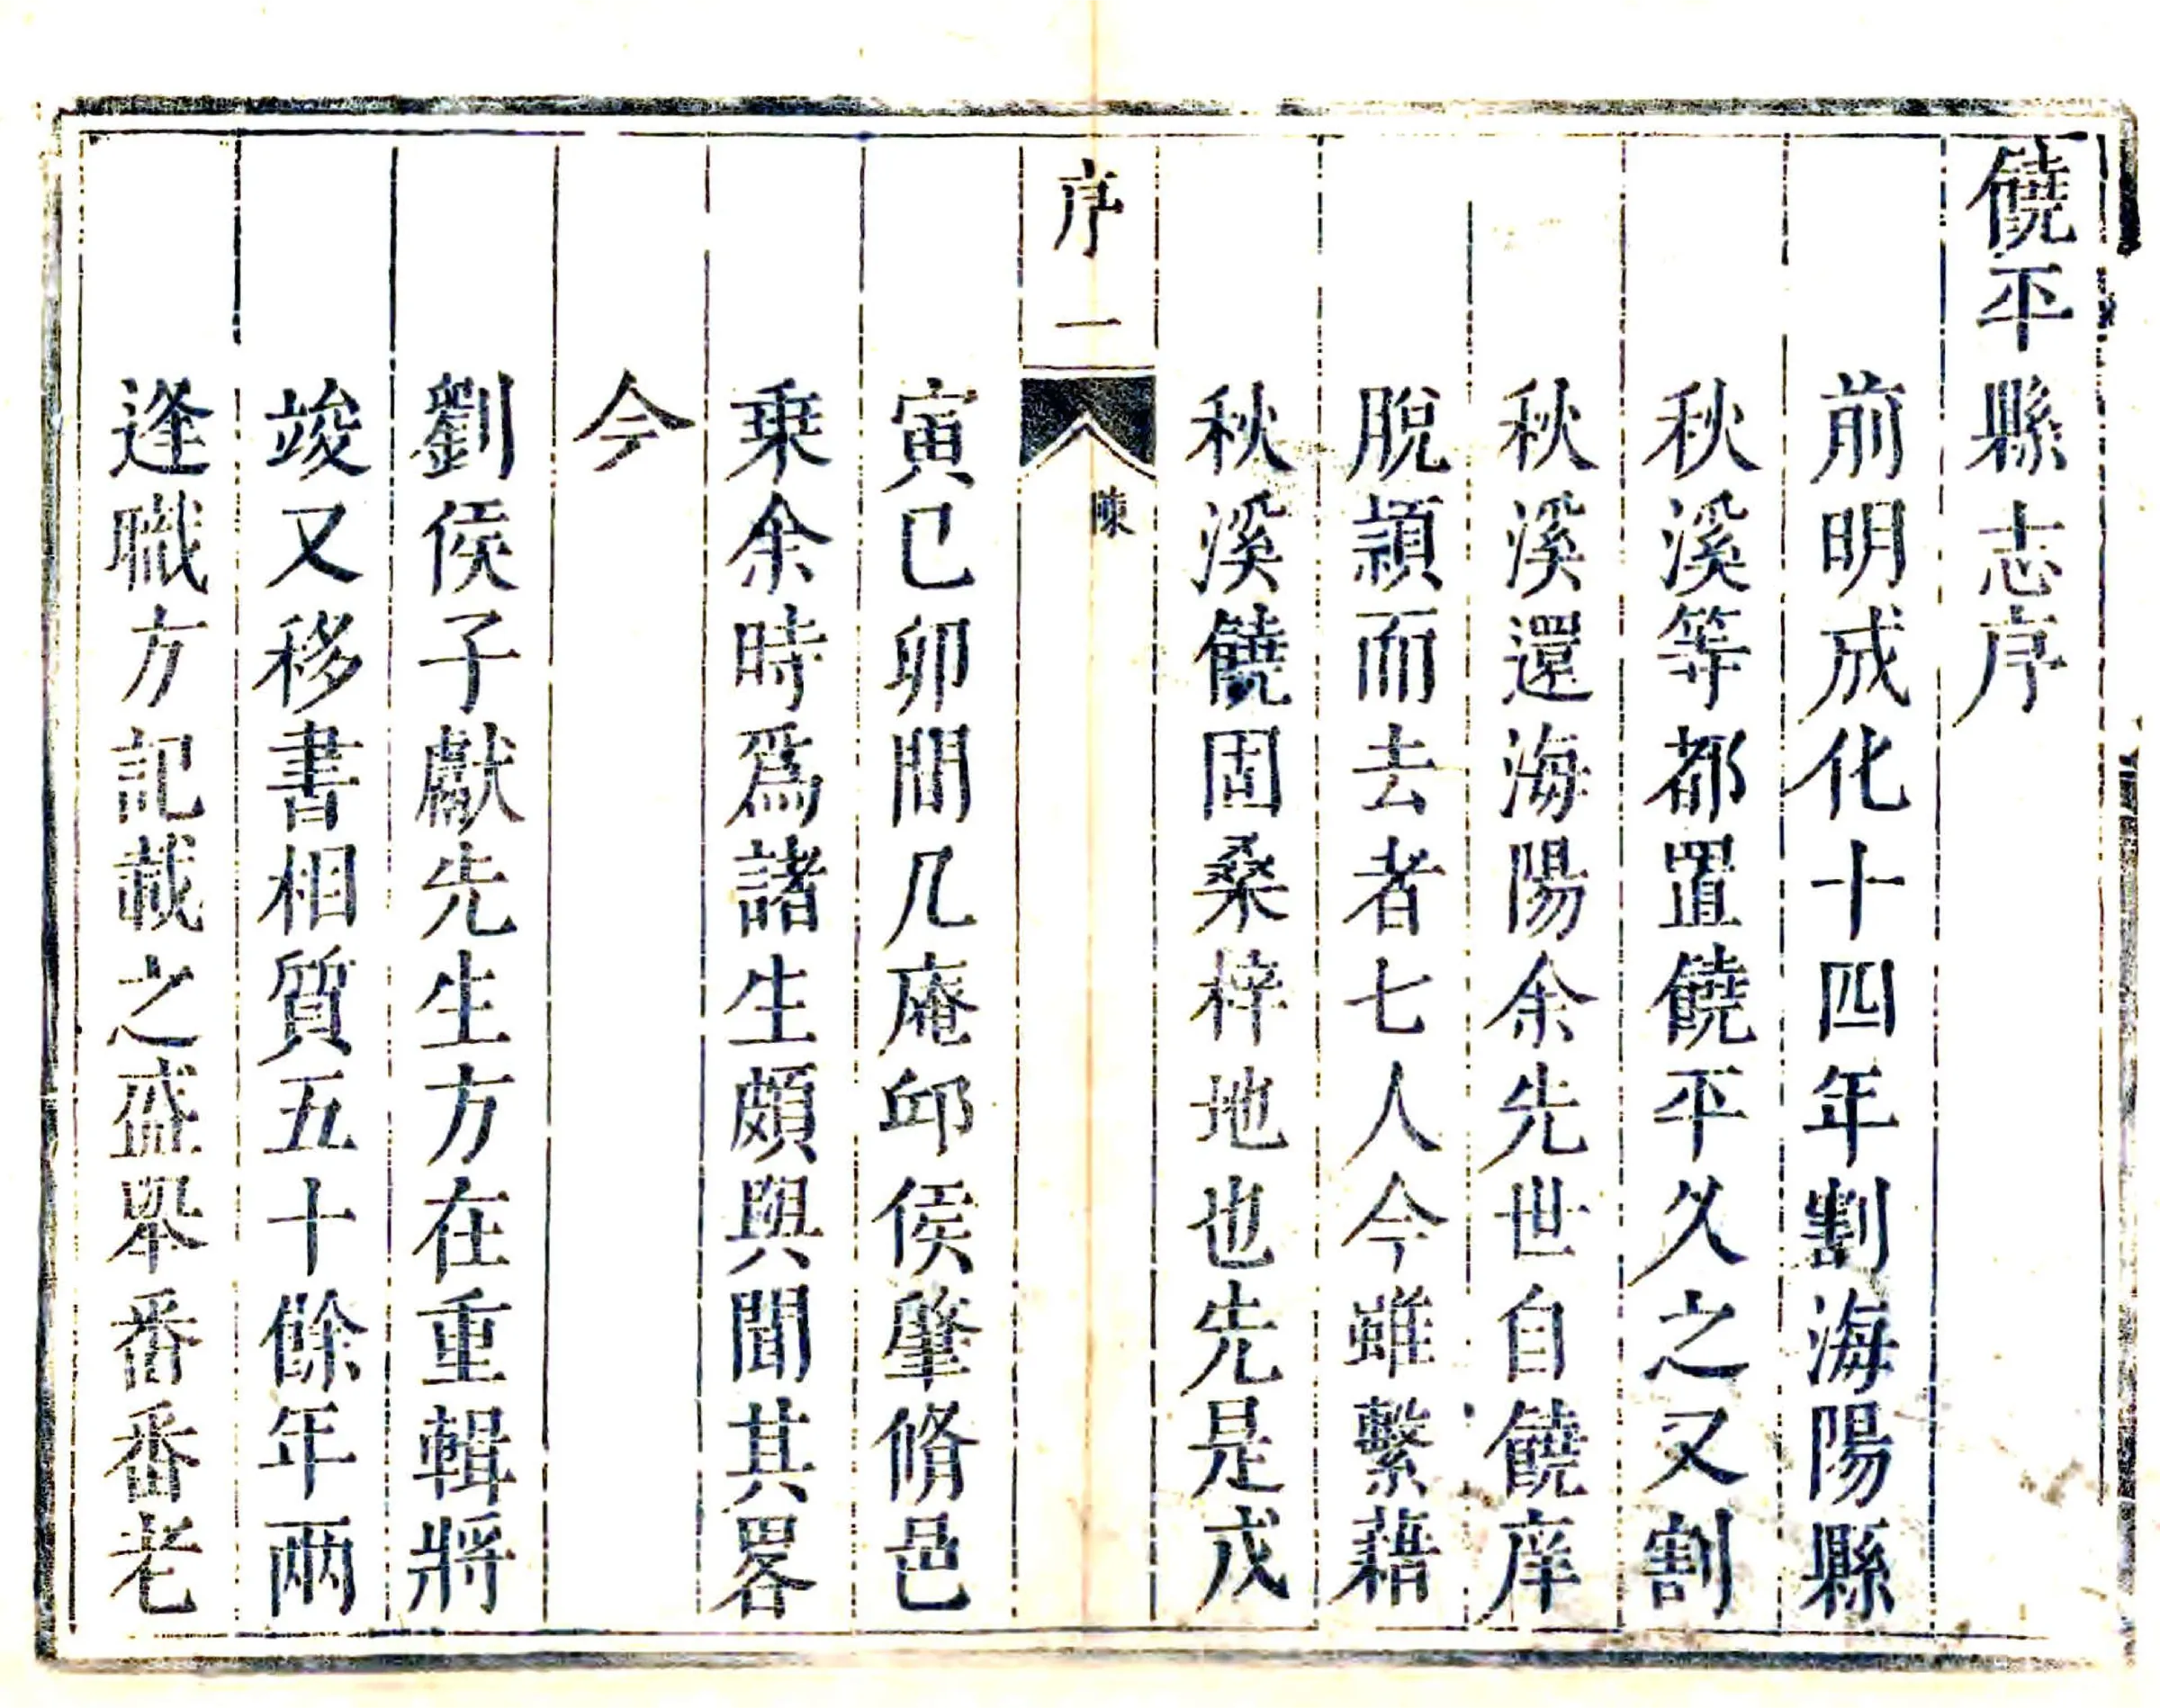 饒平縣志序
前明成化十四年割海陽縣
秋溪等都置饒平久之又割
秋溪還海陽余先世自饒庠
脫頴而去者七人今雖繫藉
秋溪饒固桑梓地也先是戊
序 一
陳
寅巳卯間几庵邱侯肇脩邑
乗余時爲諸生頗與聞其畧
今
劉侯子獻先生方在重輯將
竣又移書相質五十餘年兩
逢職方記載之盛舉番番老